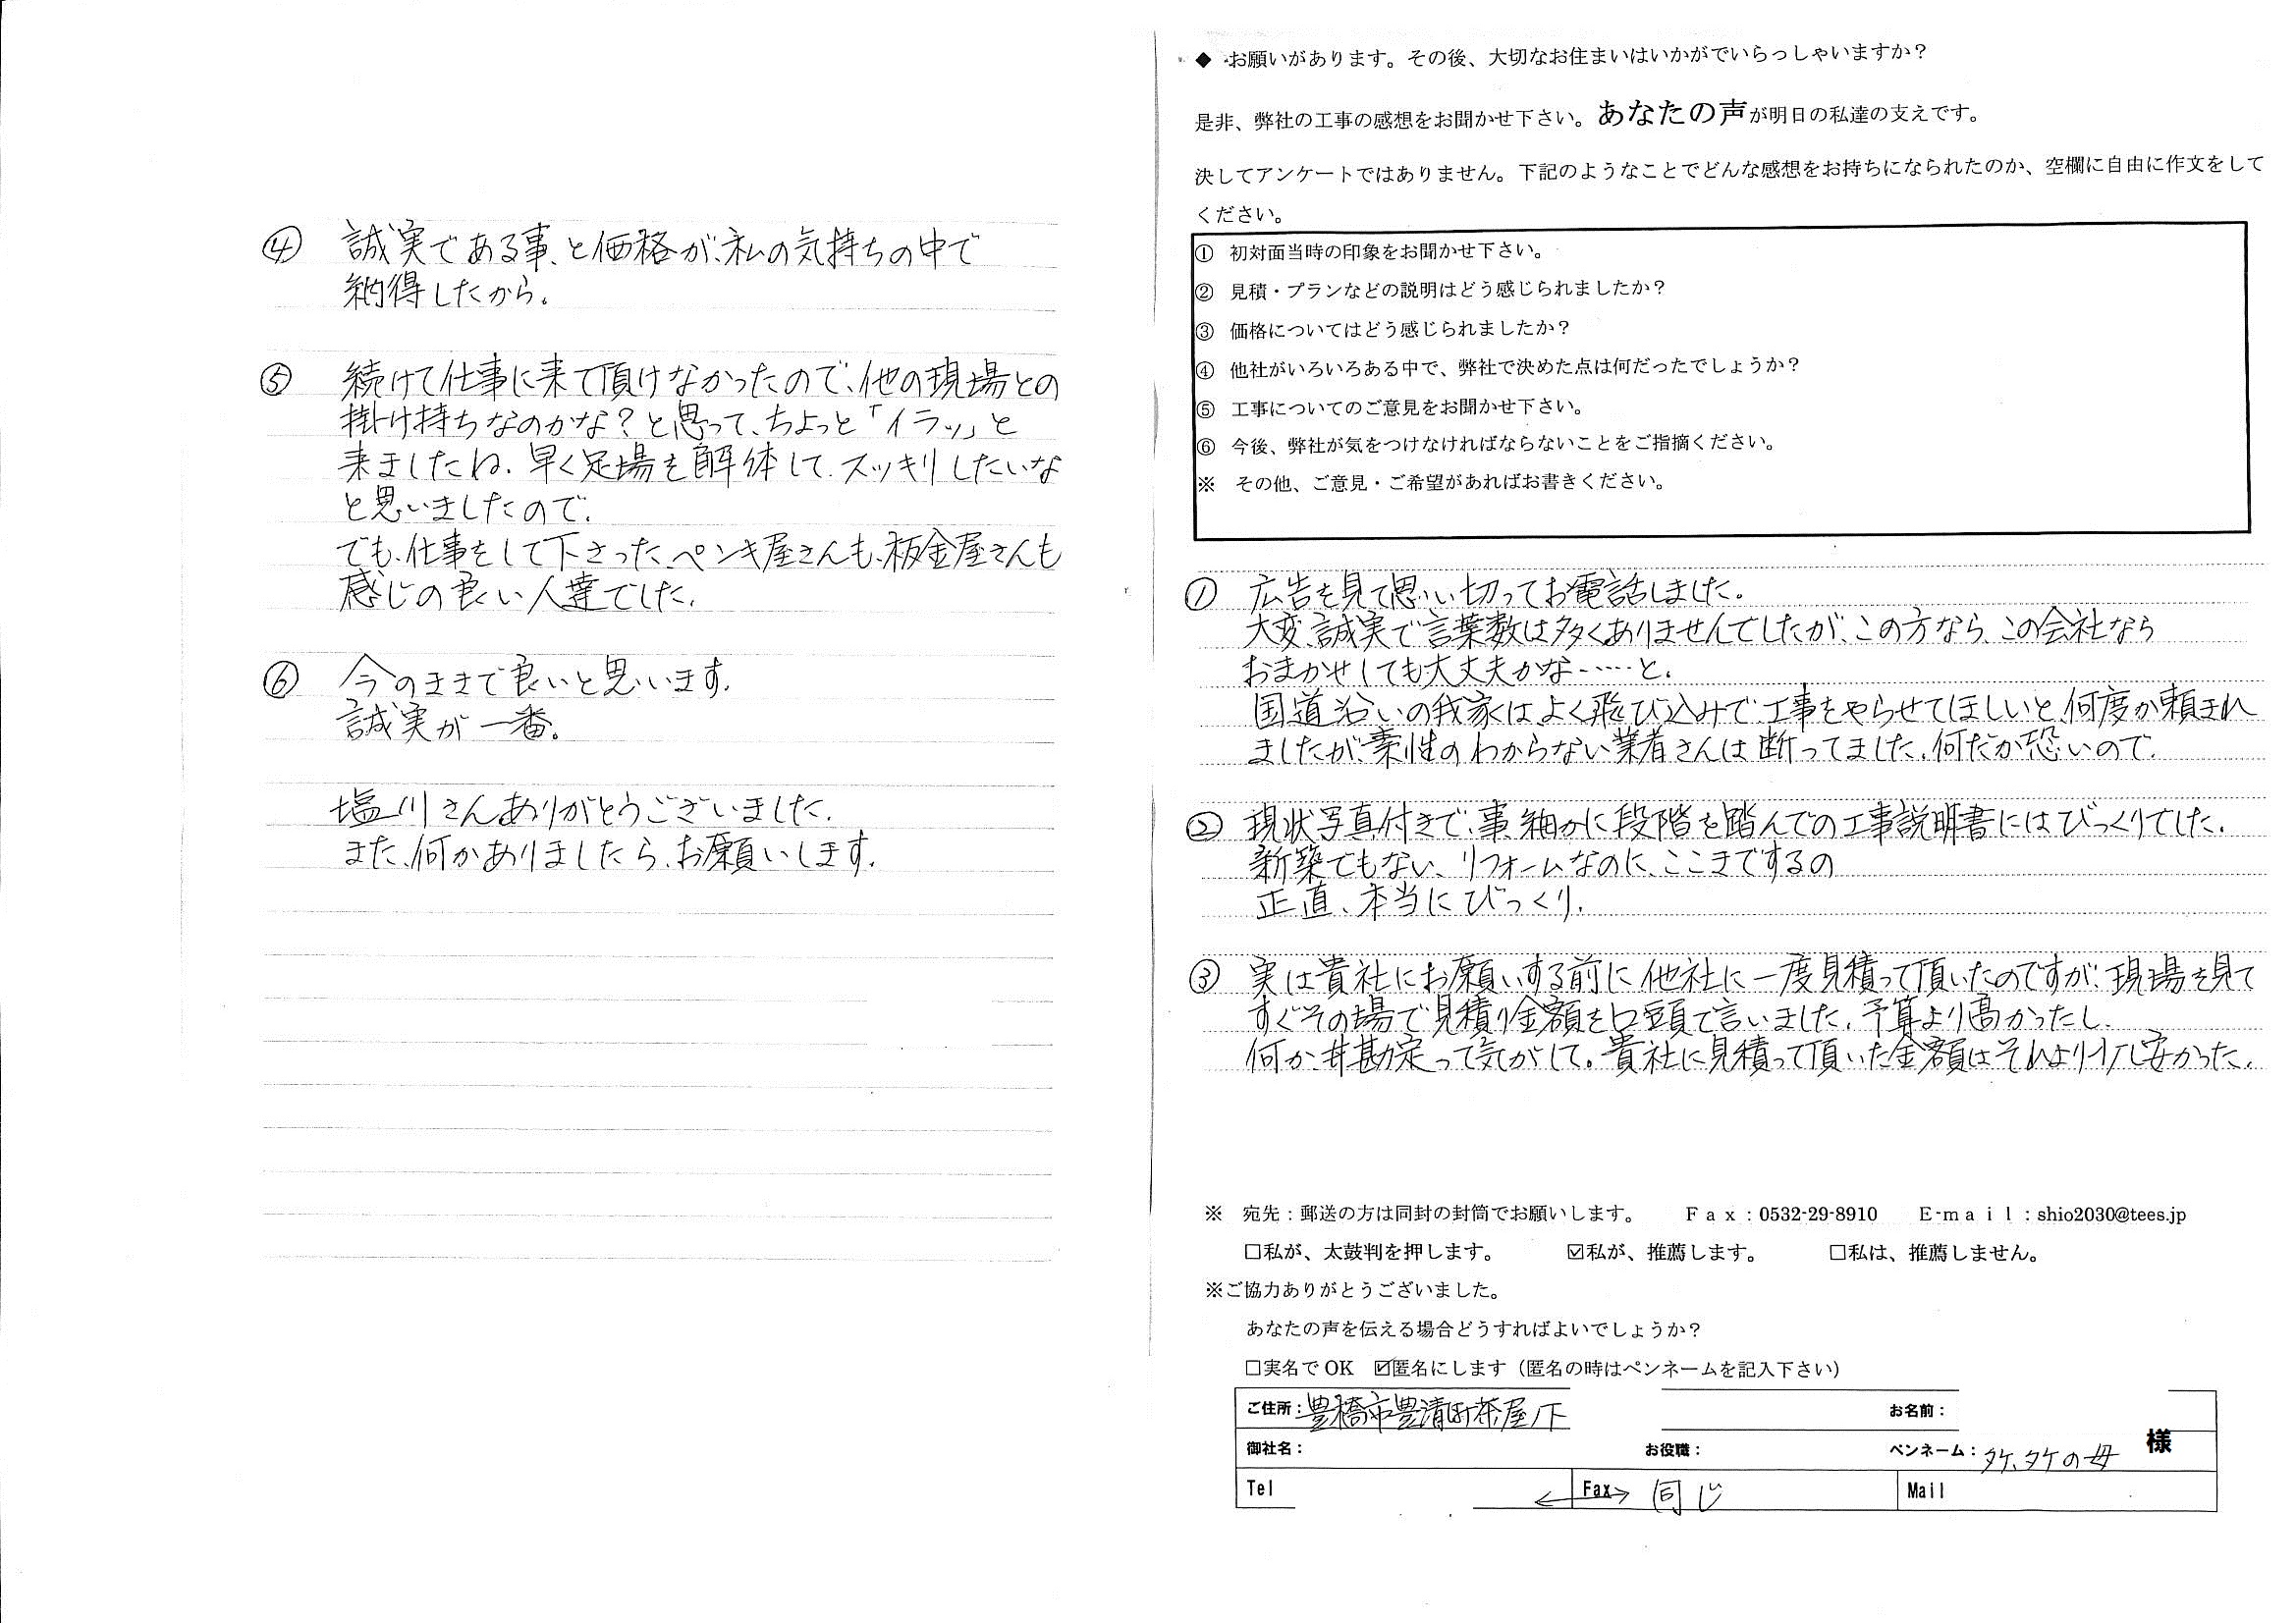 ◆ お願いがあります。その後、大切なお住まいはいかがでいらっしゃいますか？
是非、弊社の工事の感想をお聞かせ下さい。あなたの声が明日の私達の支えです。
決してアンケートではありません。下記のようなことでどんな感想をお持ちになられたのか、空欄に自由に作文をして
ください。
① 初対面当時の印象をお聞かせ下さい。
② 見積・プランなどの説明はどう感じられましたか？
③ 価格についてはどう感じられましたか？
④ 他社がいろいろある中で、弊社で決めた点は何だったでしょうか？
⑤ 工事についてのご意見をお聞かせ下さい。
⑥ 今後、弊社が気をつけなければならないことをご指摘ください。
※ その他、ご意見・ご希望があればお書きください。
① 広告を見て思い切ってお電話しました。
大変、誠実で言葉数は多くありませんでしたが、この方なら、この会社なら
おまかせしても大丈夫かな……と。
国道沿いの我家はよく飛び込みで工事をやらせてほしいと、何度か頼まれ
ましたが、素性のわからない業者さんは断ってました。何だか恐いので。
② 現状写真付きで、事細かに段階を踏んでの工事説明書にはびっくりでした。
新築でもない、リフォームなのに、ここまでするの
正直、本当にびっくり。
③ 実は貴社にお願いする前に他社に一度見積って頂いたのですが、現場を見て
すぐその場で見積り金額を口頭で言いました。予算より高かったし、
何か丼勘定って気がして。貴社に見積って頂いた金額はそれより少し安かった。
※ 宛先：郵送の方は同封の封筒でお願いします。 Ｆａｘ：0532-29-8910 Ｅ-ｍａｉｌ：shio2030@tees.jp
□私が、太鼓判を押します。 ☑私が、推薦します。 □私は、推薦しません。
※ご協力ありがとうございました。
あなたの声を伝える場合どうすればよいでしょうか？
□実名で OK ☑匿名にします（匿名の時はペンネームを記入下さい）
ご住所：豊橋市豊清町茶屋ノ下 お名前：
御社名： お役職： ペンネーム：タケ、タケの母 様
Tel ←Fax→ 同じ Mail
④ 誠実である事、と価格が、私の気持ちの中で
納得したから。
⑤ 続けて仕事に来て頂けなかったので、他の現場との
掛け持ちなのかな？と思って、ちょっと「イラッ」と
来ましたね。早く足場を解体して、スッキリしたいな
と思いましたので。
でも、仕事をして下さった、ペンキ屋さんも、板金屋さんも
感じの良い人達でした。
⑥ 今のままで良いと思います。
誠実が一番。
塩川さんありがとうございました。
また、何かありましたら、お願いします。